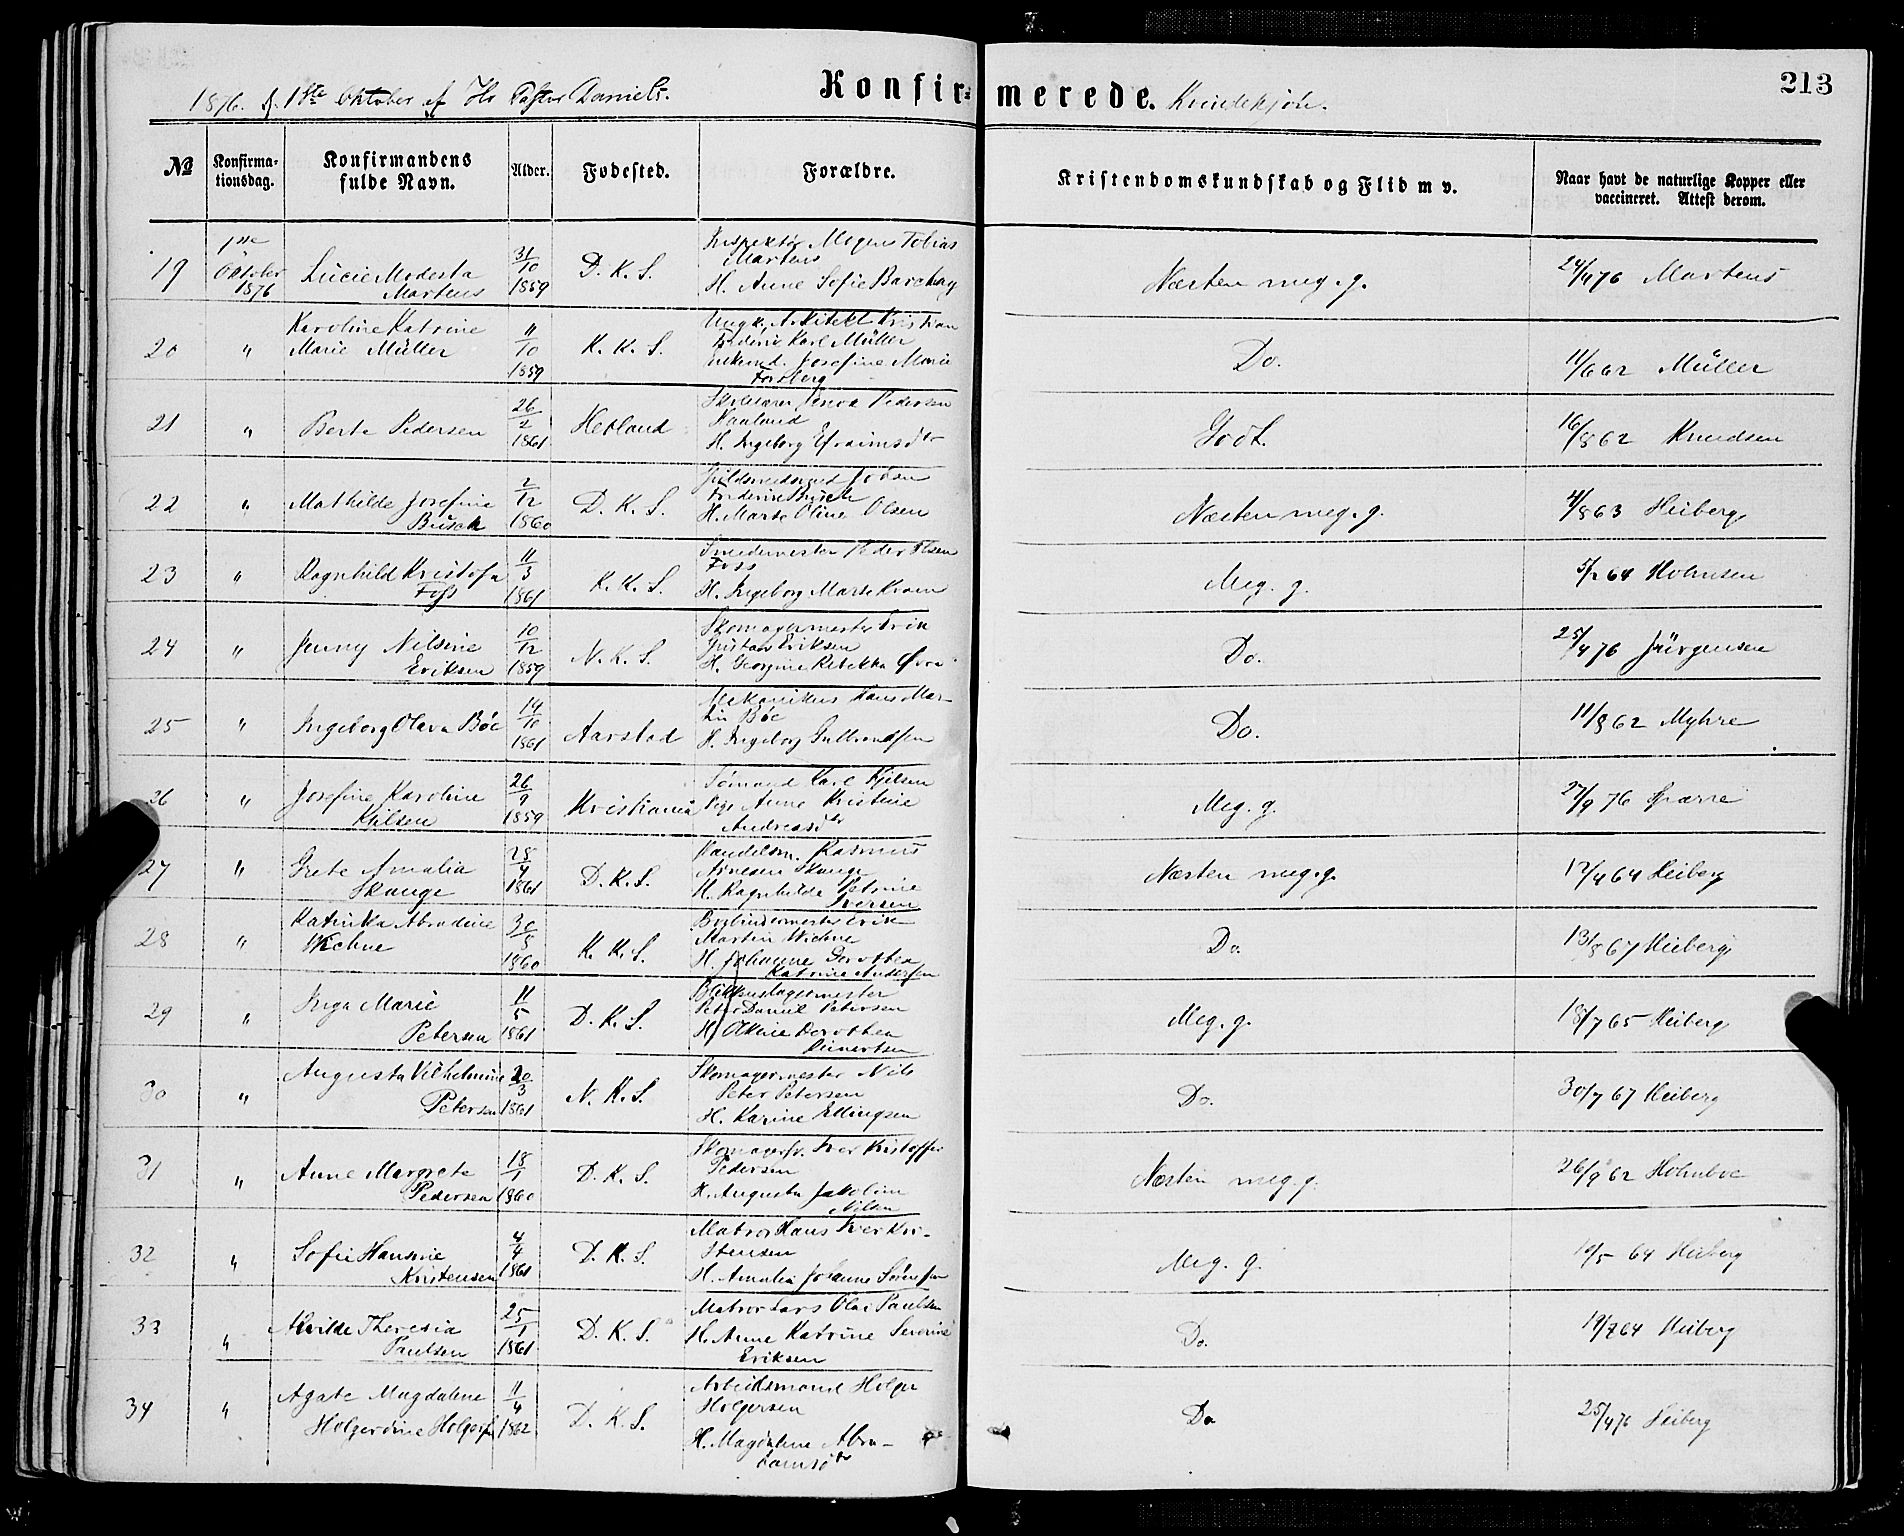 1876. d. 1ste Oktober af Hr Pastor Daniels.
Konfirmerede. Kvindekjön.
213
№ Konfirmationsdag. Konfirmandens fulde Navn. Alder. Fødested. Forældre. Kristendomskundskab og Flid m v. Naar havt de naturlige Kopper eller vaccineret. Attest derom.
19 1ste Oktober 1876 Lucie Modesta Martens 31/10 1859 D. K. S. Inspektör Mogens Tobias Martens H. Anne Sofie Næsten meg. g. 24/4 76 Martens
20 " Karoline Katrine Marie Müller 11/10 1859 K. K. S. Ungk. Arkitekt Kristian Karl Müller Josefine Marie Do. 11/6 62 Müller
21 " Berte Pedersen 26/2 1861 Hetland Pedersen Haaland H. Ingeborg Godt. 16/8 62 Knudsen
22 " Mathilde Josefine Busch 2/12 1860 D. K. S. Busch H. Marte Oline Olsen Næsten meg. g. 4/8 63 Heiberg
23 " Ragnhild Kristofa Foss 11/3 1861 K. K. S. Smedemester Peder Olsen Foss H. Ingeborg Marte Meg. g. 5/2 64 Holmsen
24 " Jenny Nilsine Eriksen 10/12 1859 N. K. S. Skomagermester Erik Gustav Eriksen H. Georgine Rebekka Do. 25/4 76 Jürgensen
25 " Ingeborg Olava Böe 14/10 1861 Aarstad Mekanikus Hans Martin Böe H. Ingeborg Gulbrandsen Do. 11/8 62 Myhre
26 " Josefine Karoline 26/9 1859 Kristiania Sömand Karl Pige Anne Kristine Andreasdtr Meg. g. 27/9 76
27 " Grete Amalia Skauge 28/4 1861 D. K. S. Handelsm. Rasmus Arnesen Skauge H. Ragnhilda Petrine Iversen Næsten meg. g. 17/4 64 Heiberg
28 " Katinka Abradine Wichne 30/8 1860 K. K. S. Bogbindermester Erik Martin Wichne H. Johanne Dorothea Katrine Andersen Do. 13/8 67 Heiberg
29 " Inga Marie Petersen 11/5 1861 D. K. S. Blikkenslagermester Peter Daniel Petersen H. Dorothea Reinertsen Meg. g. 18/7 65 Heiberg
30 " Augusta Vilhelmine Petersen 20/3 1861 N. K. S. Skomagermester Nils Peter Petersen H. Karine Ellingsen Do. 30/7 67 Heiberg
31 " Anne Margrete Pedersen 18/1 1860 D. K. S. Skomagersv. Iver Kristoffer Pedersen H. Augusta Jakobine Nilsen Næsten meg. g. 26/9 62 Holmboe
32 " Sofie Hansine Kristensen 4/4 1861 D. K. S. Matros Hans Iver Kristensen H. Amalia Johanne Sörensen Meg. g. 19/5 64 Heiberg
33 " Theresia Paulsen 25/1 1861 D. K. S. Matros Lars Olai Paulsen H. Anne Katrine Severine Eriksen Do. 19/7 64 Heiberg
34 " Agate Magdalene Holgerdine Holgersen 11/4 1862 D. K. S. Arbeidsmand Holger Holgersen H. Magdalene Abrahamsdtr Do 25/4 76 Heiberg